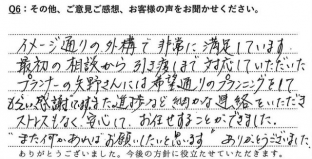 Q6：その他、ご意見ご感想、お客様の声をお聞かせください。
イメージ通りの外構で非常に満足しています。
最初の相談から引き渡しまで対応していただいた
プランナーの矢野さんには希望通りのプランニングをして
感謝 また進捗など細かな連絡をいただき
ストレスもなく安心して、お任せすることができました。
また何かあればお願いしたいと思います ありがとうございました。
ありがとうございました。今後の方針に役立たせていただきます。